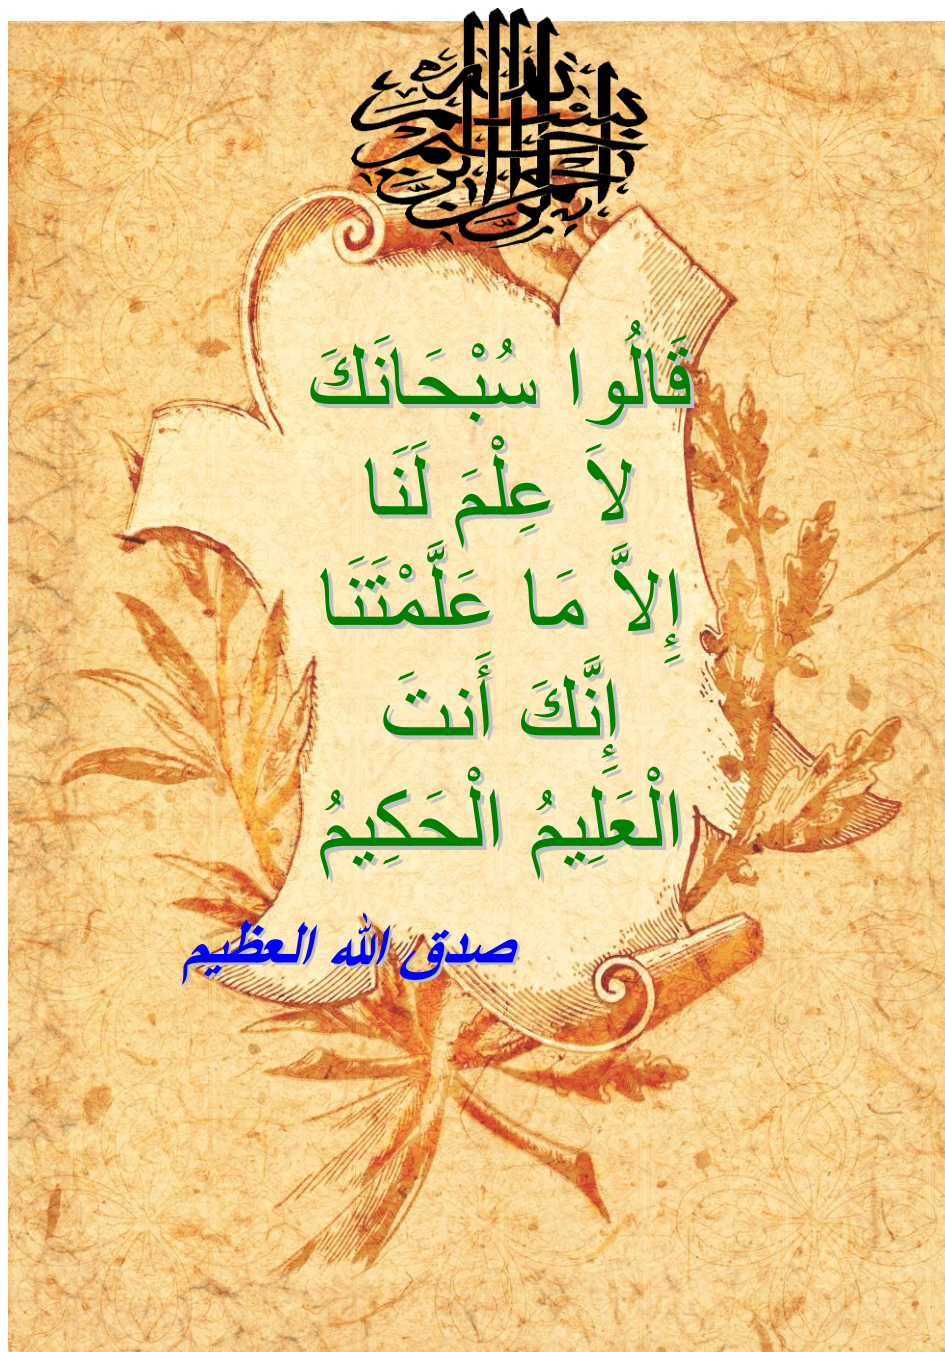 بسم الله الرحمن الرحيم
قَالُوا سُبْحَانَكَ
لاَ عِلْمَ لَنَا
إِلاَّ مَا عَلَّمْتَنَا
إِنَّكَ أَنتَ
الْعَلِيمُ الْحَكِيمُ
صدق الله العظيم